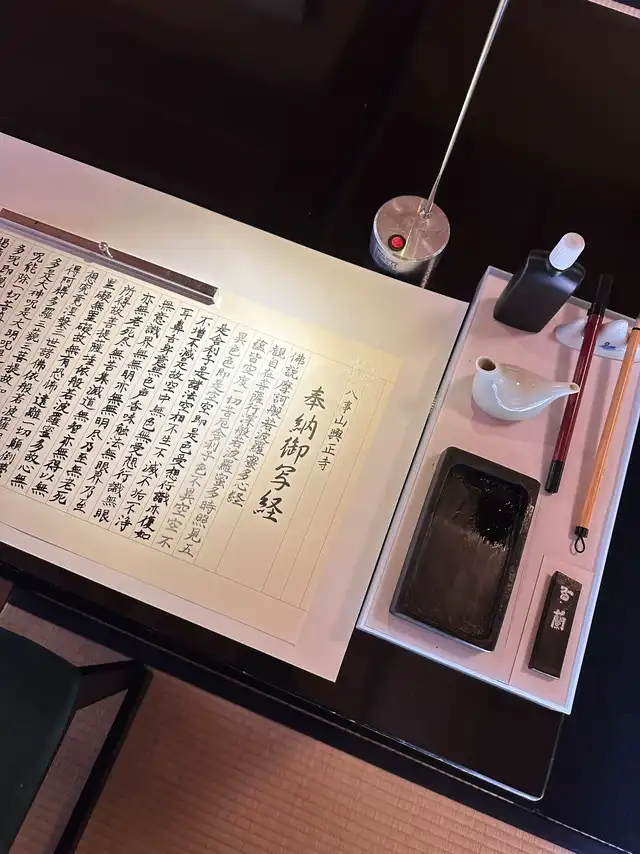 八事山興正寺
奉納御写経
佛説摩訶般若波羅蜜多心経
観自在菩薩行深般若波羅蜜多時照見五
蘊皆空度一切苦厄舎利子色不異空空不
異色色即是空空即是色受想行識亦復如
是舎利子是諸法空相不生不滅不垢不浄
不増不減是故空中無色無受想行識無眼
耳鼻舌身意無色声香味触法無眼界乃至
無意識界無無明亦無無明尽乃至無老死
亦無老死尽無苦集滅道無智亦無得以無
所得故菩提薩埵依般若波羅蜜多故心無
罣礙無罣礙故無有恐怖遠離一切顛倒夢
想究竟涅槃三世諸佛依般若波羅蜜多故
得阿耨多羅三藐三菩提故知般若波羅蜜
多是大神呪是大明呪
呪能除一切苦
多呪即説呪曰
香蘭